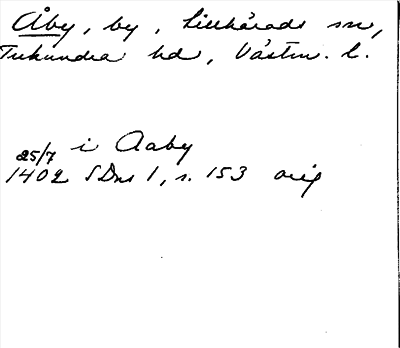 Åby, by, Lillhärads sn,
Tuhundra hd, Västm. l.
i Aaby
25/7
1402 SDns 1, s. 153 orig